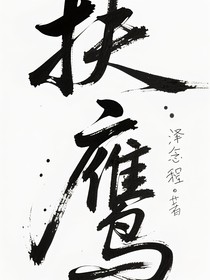 扶鹰
泽念程。著